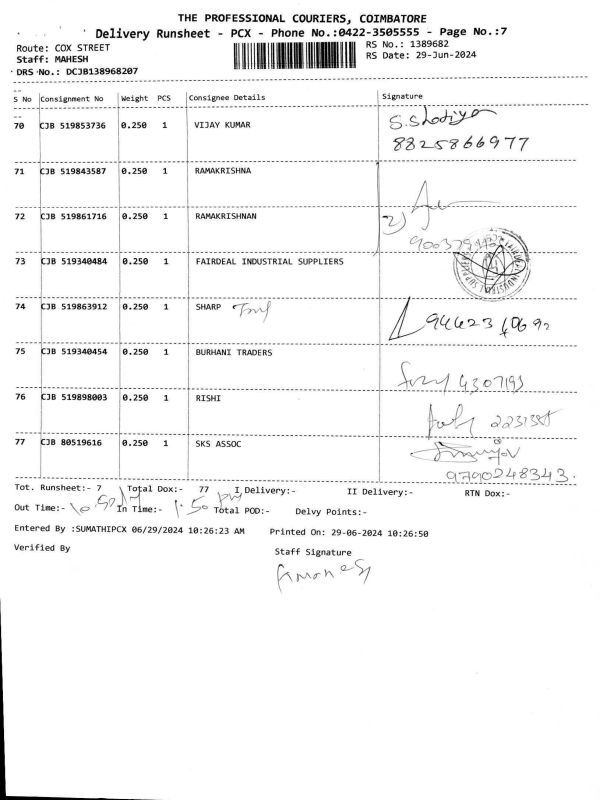 THE PROFESSIONAL COURIERS, COIMBATORE
Delivery Runsheet - PCX - Phone No.:0422-3505555 - Page No.:7
Route: COX STREET
RS No.: 1389682
Staff: MAHESH
RS Date: 29-Jun-2024
DRS No.: DCJB138968207
S No Consignment No Weight PCS Consignee Details Signature
70 CJB 519853736 0.250 1 VIJAY KUMAR
8825866977
71 CJB 519843587 0.250 1 RAMAKRISHNA
72 CJB 519861716 0.250 1 RAMAKRISHNAN
73 CJB 519340484 0.250 1 FAIRDEAL INDUSTRIAL SUPPLIERS
74 CJB 519863912 0.250 1 SHARP
75 CJB 519340454 0.250 1 BURHANI TRADERS
4307193
76 CJB 519898003 0.250 1 RISHI
77 CJB 80519616 0.250 1 SKS ASSOC
9790248343.
Tot. Runsheet:- 7 Total Dox:- 77 I Delivery:- II Delivery:- RTN Dox:-
Out Time:- 10.50 In Time:- 1.50 pm Total POD:- Delvy Points:-
Entered By :SUMATHIPCX 06/29/2024 10:26:23 AM Printed On: 29-06-2024 10:26:50
Verified By
Staff Signature